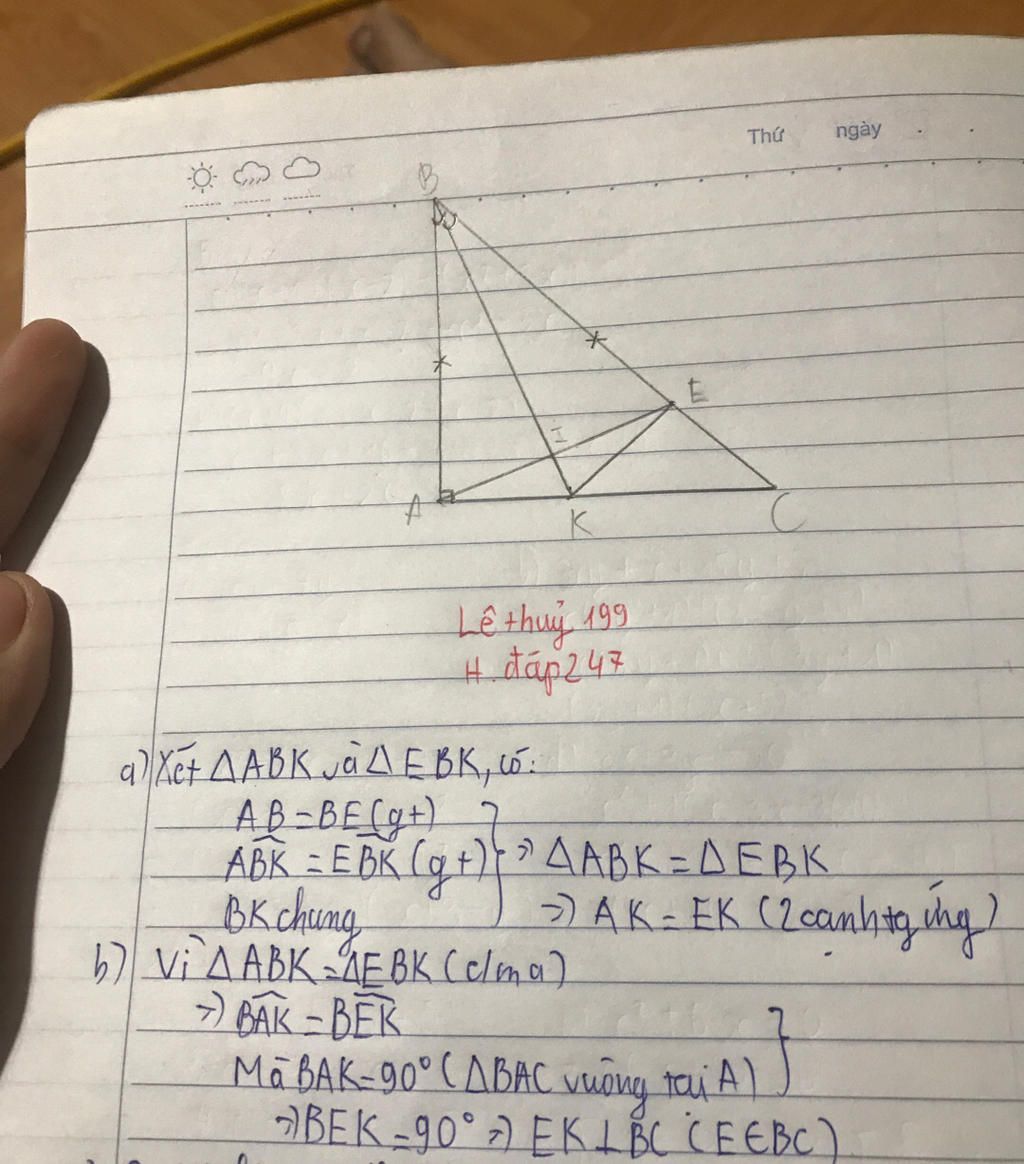 Thứ ngày
B
E
I
A
K
C
Lê thuỷ 199
H. đáp 247
a) Xét ΔABK và ΔEBK, có:
AB = BE (gt)
ABK = EBK (gt) => ΔABK = ΔEBK
BK chung => AK = EK (2 cạnh tg ứng)
b) Vì ΔABK = ΔEBK (c/m a)
=> BAK = BEK
Mà BAK = 90° (ΔBAC vuông tại A)
=> BEK = 90° => EK ⊥ BC (E ∈ BC)